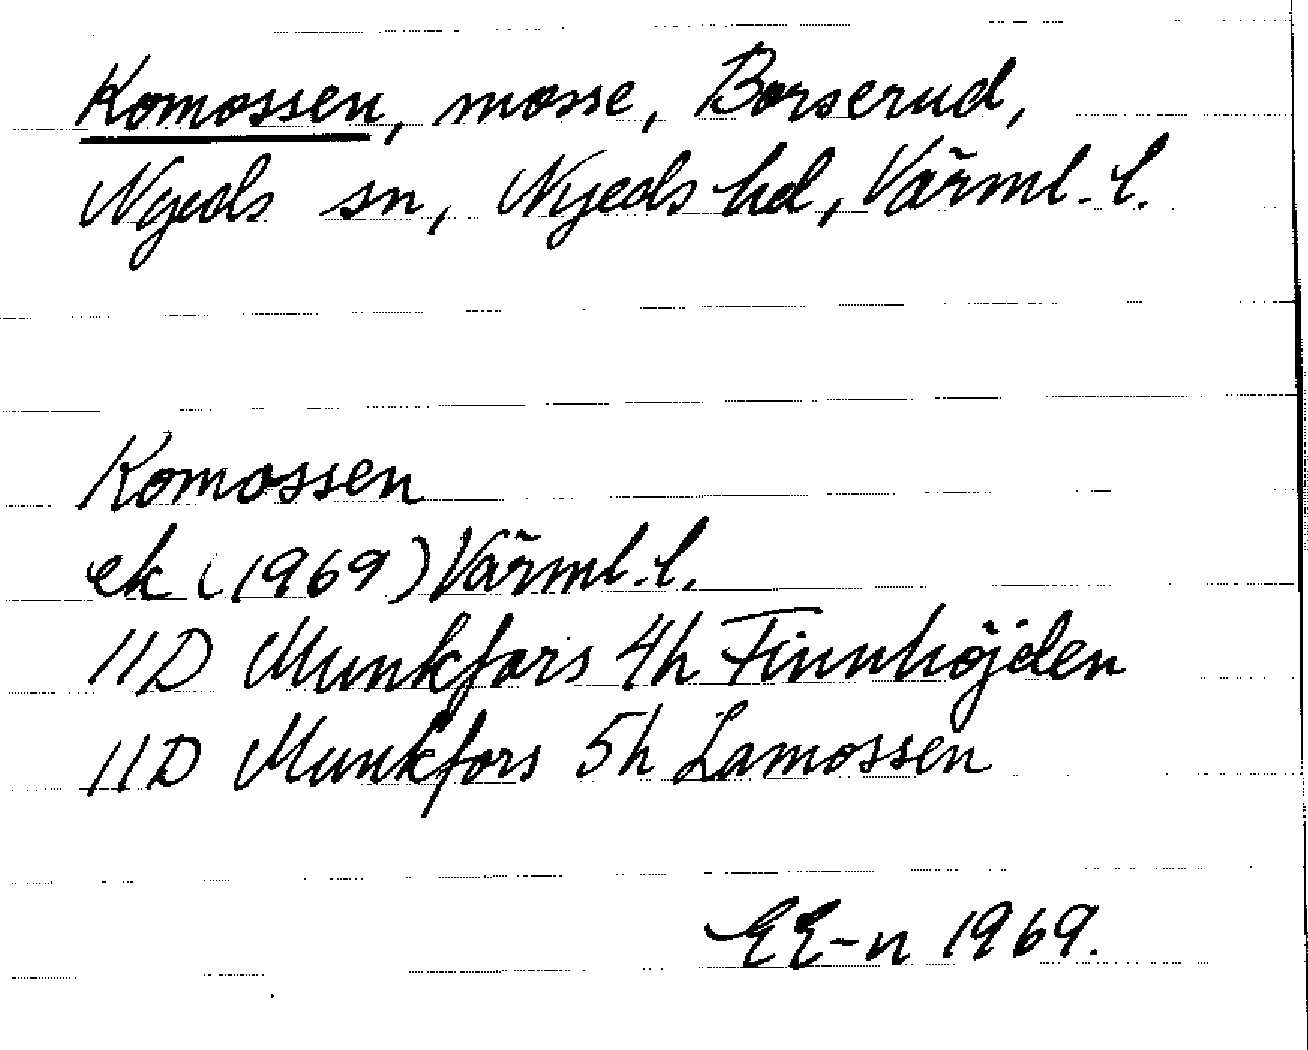 Komossen, mosse, Borserud,
Nyeds sn, Nyeds hd, Värml. l.
Komossen
ek (1969) Värml. l.
11D Munkfors 4h Finnhöjden
11D Munkfors 5h Lamossen
EE-n 1969.